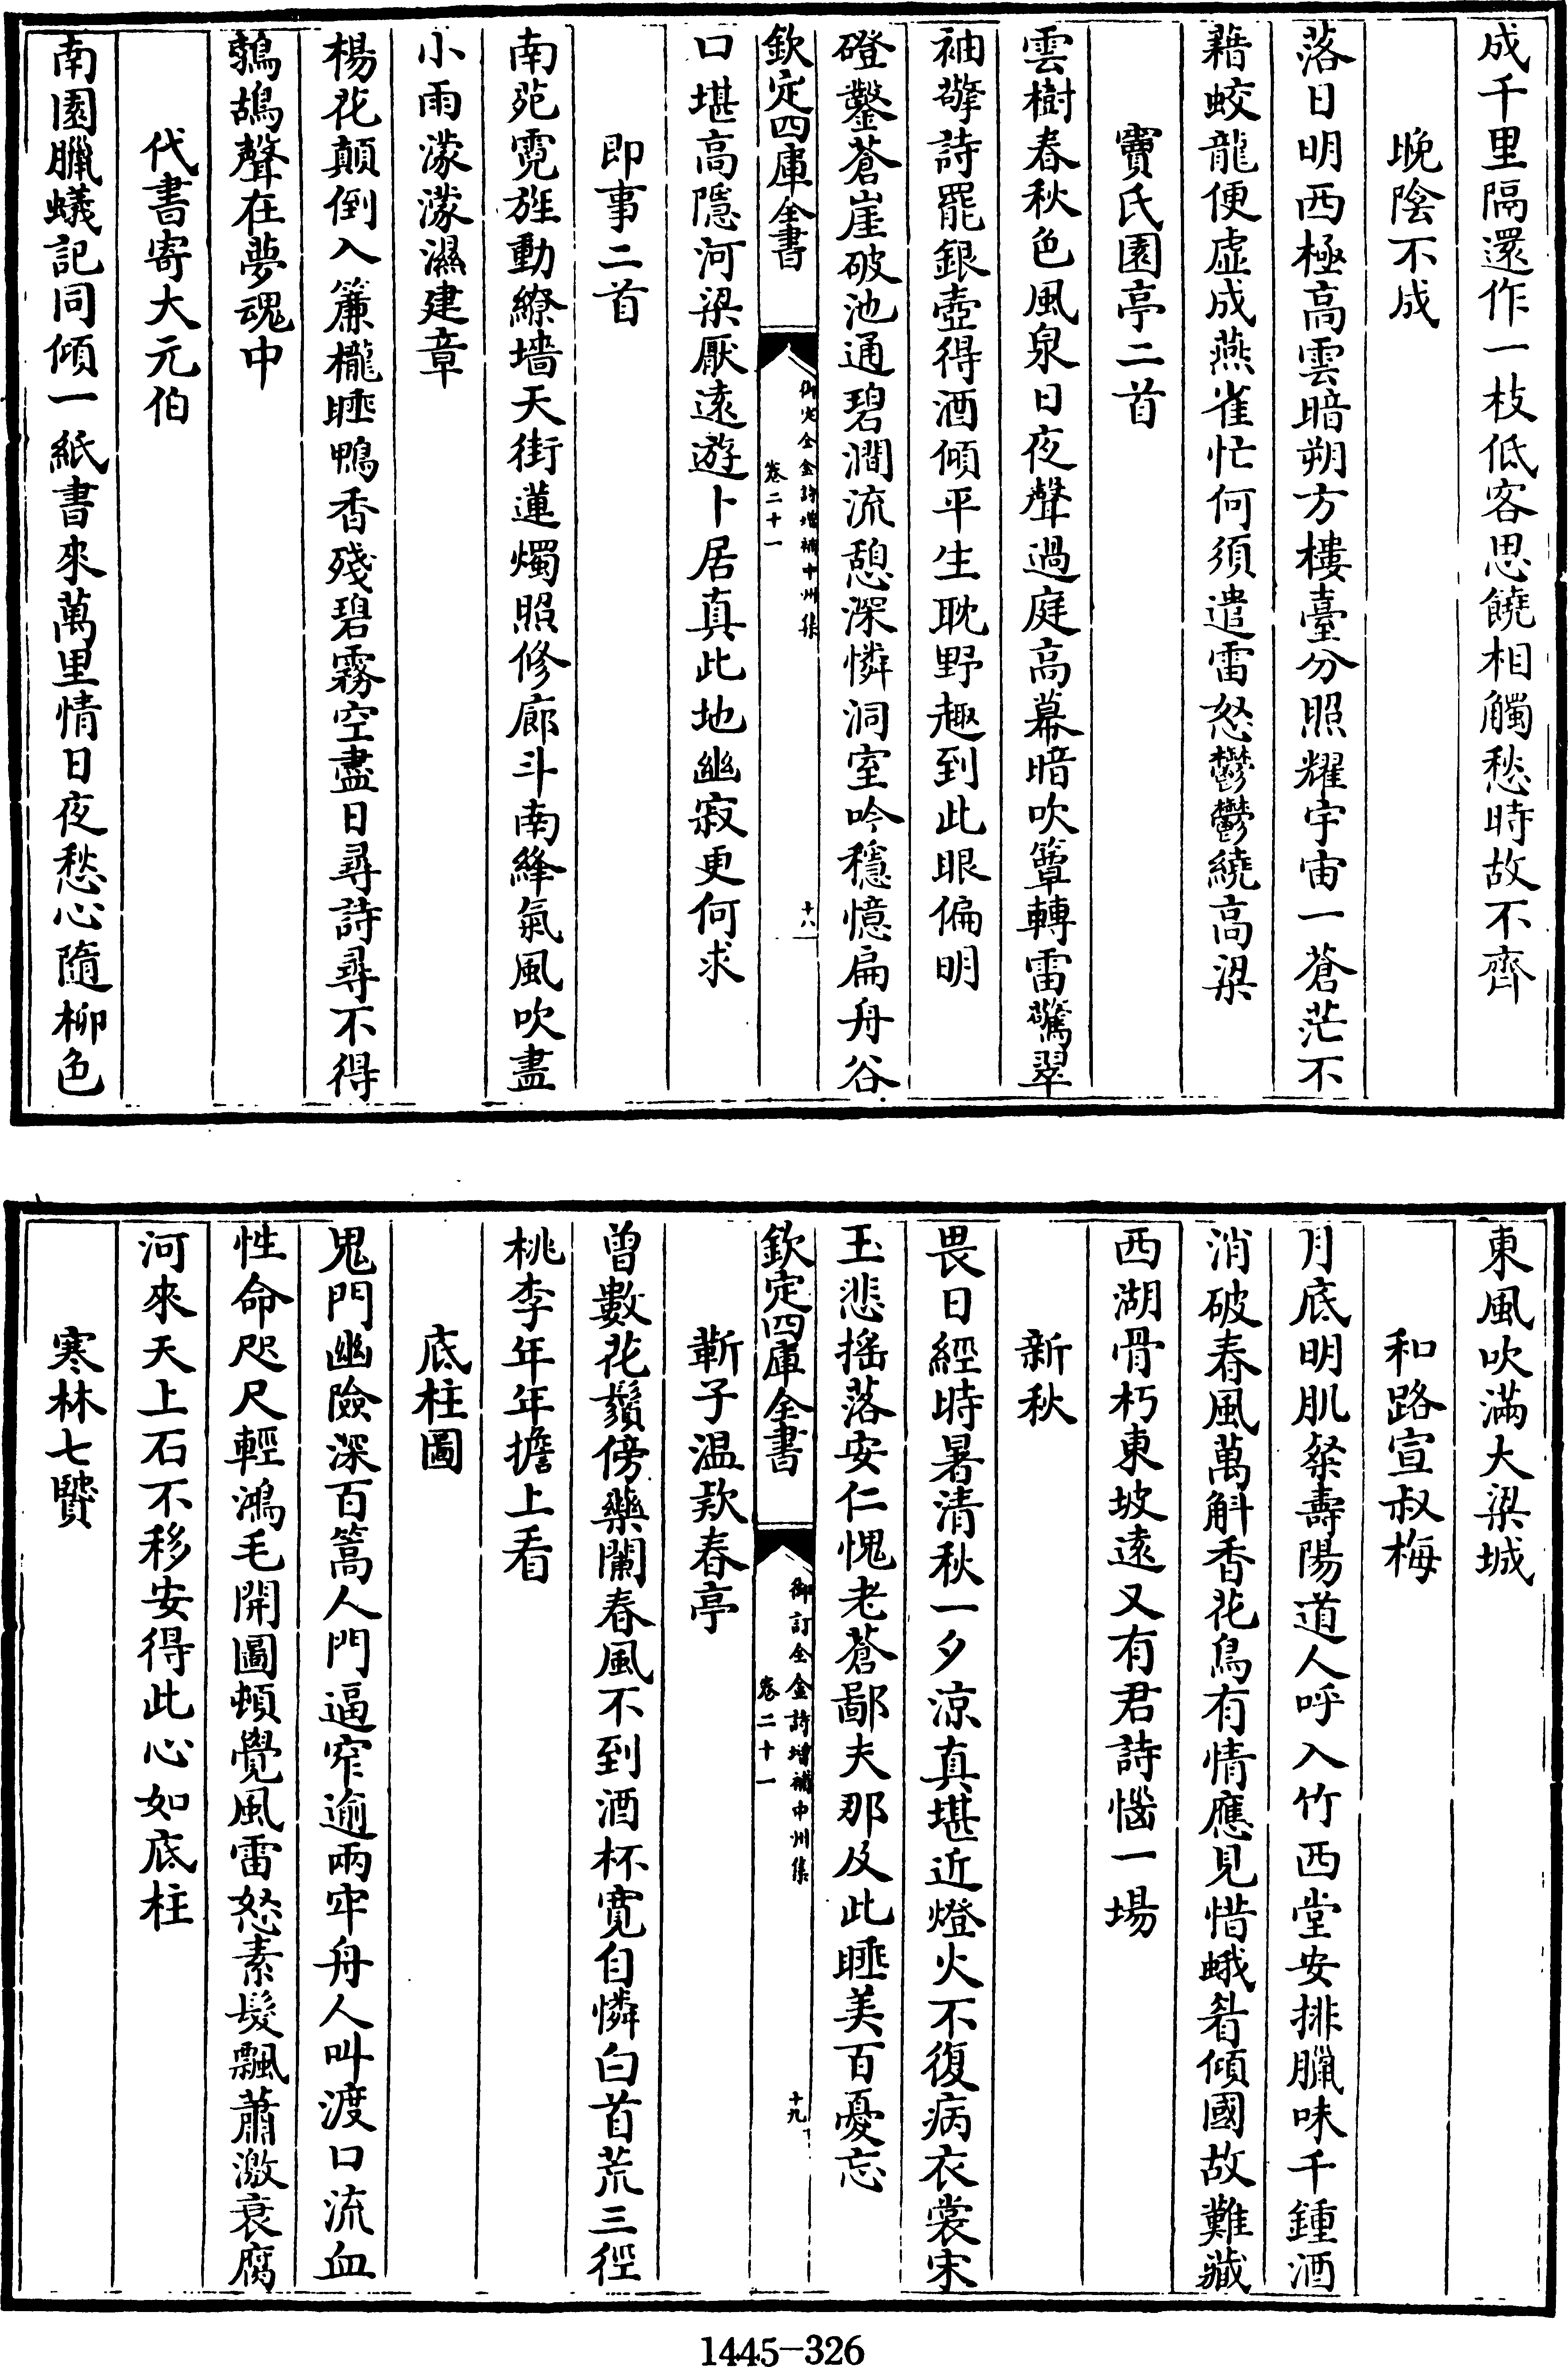 成千里隔還作一枝低客思饒相觸愁時故不齊
晚陰不成
落日明西極高雲暗朔方樓臺分照耀宇宙一蒼茫不
藉蛟龍便虛成燕雀忙何須遣雷怒鬱鬱繞高梁
竇氏園亭二首
雲樹春秋色風泉日夜聲過庭高幕暗吹簟轉雷驚翠
袖擎詩罷銀壺得酒傾平生耽野趣到此眼偏明
磴鑿蒼崖破池通碧澗流憩深憐洞室吟穩憶扁舟谷
欽定四庫全書
御定全金詩增補中州集
卷二十一
十八
口堪高隱河梁厭遠遊卜居真此地幽寂更何求
即事二首
南苑霓旌動繚墻天街蓮燭照修廊斗南絳氣風吹盡
小雨濛濛濕建章
楊花顛倒入簾櫳睡鴨香殘碧霧空盡日尋詩尋不得
鷓鴣聲在夢魂中
代書寄大元伯
南園臘蟻記同傾一紙書來萬里情日夜愁心隨柳色
東風吹滿大梁城
和路宣叔梅
月底明肌粲壽陽道人呼入竹西堂安排臘味千鍾酒
消破春風萬斛香花鳥有情應見惜蛾眉傾國故難藏
西湖骨朽東坡遠又有君詩惱一場
新秋
畏日經時暑清秋一夕涼真堪近燈火不復病衣裳宋
玉悲搖落安仁愧老蒼鄙夫那及此睡美百憂忘
欽定四庫全書
御訂全金詩增補中州集
卷二十一
十九
靳子溫欵春亭
曾數花鬚傍藥闌春風不到酒杯寬自憐白首荒三徑
桃李年年擔上看
底柱圖
鬼門幽險深百篙人門逼窄逾兩牢舟人叫渡口流血
性命咫尺輕鴻毛開圖頓覺風雷怒素髮飄蕭激衰腐
河來天上石不移安得此心如底柱
寒林七賢
1445-326